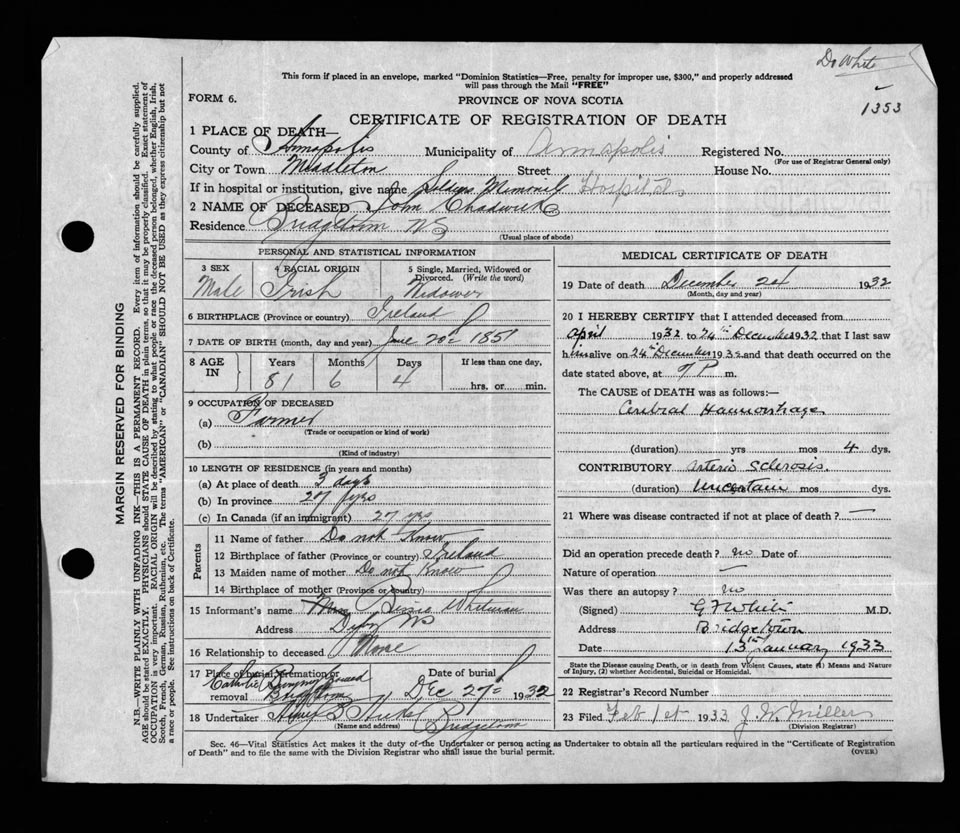 Dr White
1353
This form if placed in an envelope, marked "Dominion Statistics—Free, penalty for improper use, $300," and properly addressed
will pass through the Mail "FREE"
FORM 6.
PROVINCE OF NOVA SCOTIA
CERTIFICATE OF REGISTRATION OF DEATH
1 PLACE OF DEATH—
County of Annapolis Municipality of Annapolis Registered No.
(For use of Registrar General only)
City or Town Middleton Street House No.
If in hospital or institution, give name Soldiers Memorial Hospital
2 NAME OF DECEASED John Chadwick
Residence Bridgetown NS
(Usual place of abode)
PERSONAL AND STATISTICAL INFORMATION
3 SEX 4 RACIAL ORIGIN 5 Single, Married, Widowed or
Divorced. (Write the word)
Male Irish Widower
6 BIRTHPLACE (Province or country) Ireland
7 DATE OF BIRTH (month, day and year) June 20 1851
8 AGE IN Years Months Days If less than one day,
81 6 4 hrs. or min.
9 OCCUPATION OF DECEASED
(a) Farmer
(Trade or occupation or kind of work)
(b)
(Kind of industry)
10 LENGTH OF RESIDENCE (in years and months)
(a) At place of death 3 days
(b) In province 27 yrs
(c) In Canada (if an immigrant) 27 yrs
Parents
11 Name of father Do not Know
12 Birthplace of father (Province or country) Ireland
13 Maiden name of mother Do not Know
14 Birthplace of mother (Province or country)
15 Informant's name Whitman
Address NS
16 Relationship to deceased
17 Place of burial, cremation or removal Date of burial
Catholic Ground
Bridgetown Dec 27 1932
18 Undertaker
(Name and address) Bridgetown
MEDICAL CERTIFICATE OF DEATH
19 Date of death December 24 1932
(Month, day and year)
20 I HEREBY CERTIFY that I attended deceased from
April 1932 to 24th December 1932 that I last saw
him alive on 24th December 1932 and that death occurred on the
date stated above, at 7 P m.
The CAUSE OF DEATH was as follows:
Cerebral Haemorrhage
(duration) yrs mos 4 dys.
CONTRIBUTORY Arterio Sclerosis.
(duration) Uncertain mos dys.
21 Where was disease contracted if not at place of death? —
Did an operation precede death? no Date of
Nature of operation —
Was there an autopsy? no
(Signed) G F White M.D.
Address Bridgetown
Date 13th January 1933
State the Disease causing Death, or in death from Violent Causes, state (1) Means and Nature
of Injury, (2) whether Accidental, Suicidal or Homicidal.
22 Registrar's Record Number
23 Filed Feb 1st 1933 J. W. Miller
(Division Registrar)
Sec. 46—Vital Statistics Act makes it the duty of the Undertaker or person acting as Undertaker to obtain all the particulars required in the "Certificate of Registration
of Death" and to file the same with the Division Registrar who shall issue the burial permit.
(OVER)
MARGIN RESERVED FOR BINDING
N.B.—WRITE PLAINLY WITH UNFADING INK—THIS IS A PERMANENT RECORD. Every item of information should be carefully supplied.
AGE should be stated EXACTLY. PHYSICIANS should STATE CAUSE OF DEATH in plain terms, so that it may be properly classified. Exact statement of
OCCUPATION is very important. RACIAL ORIGIN will be described by stating to what people or race the deceased person belonged, whether English, Irish,
Scotch, French, German, Russian, Ruthenian, etc. The terms "AMERICAN" or "CANADIAN" SHOULD NOT BE USED as they express citizenship but not
a race or people. See instructions on back of Certificate.